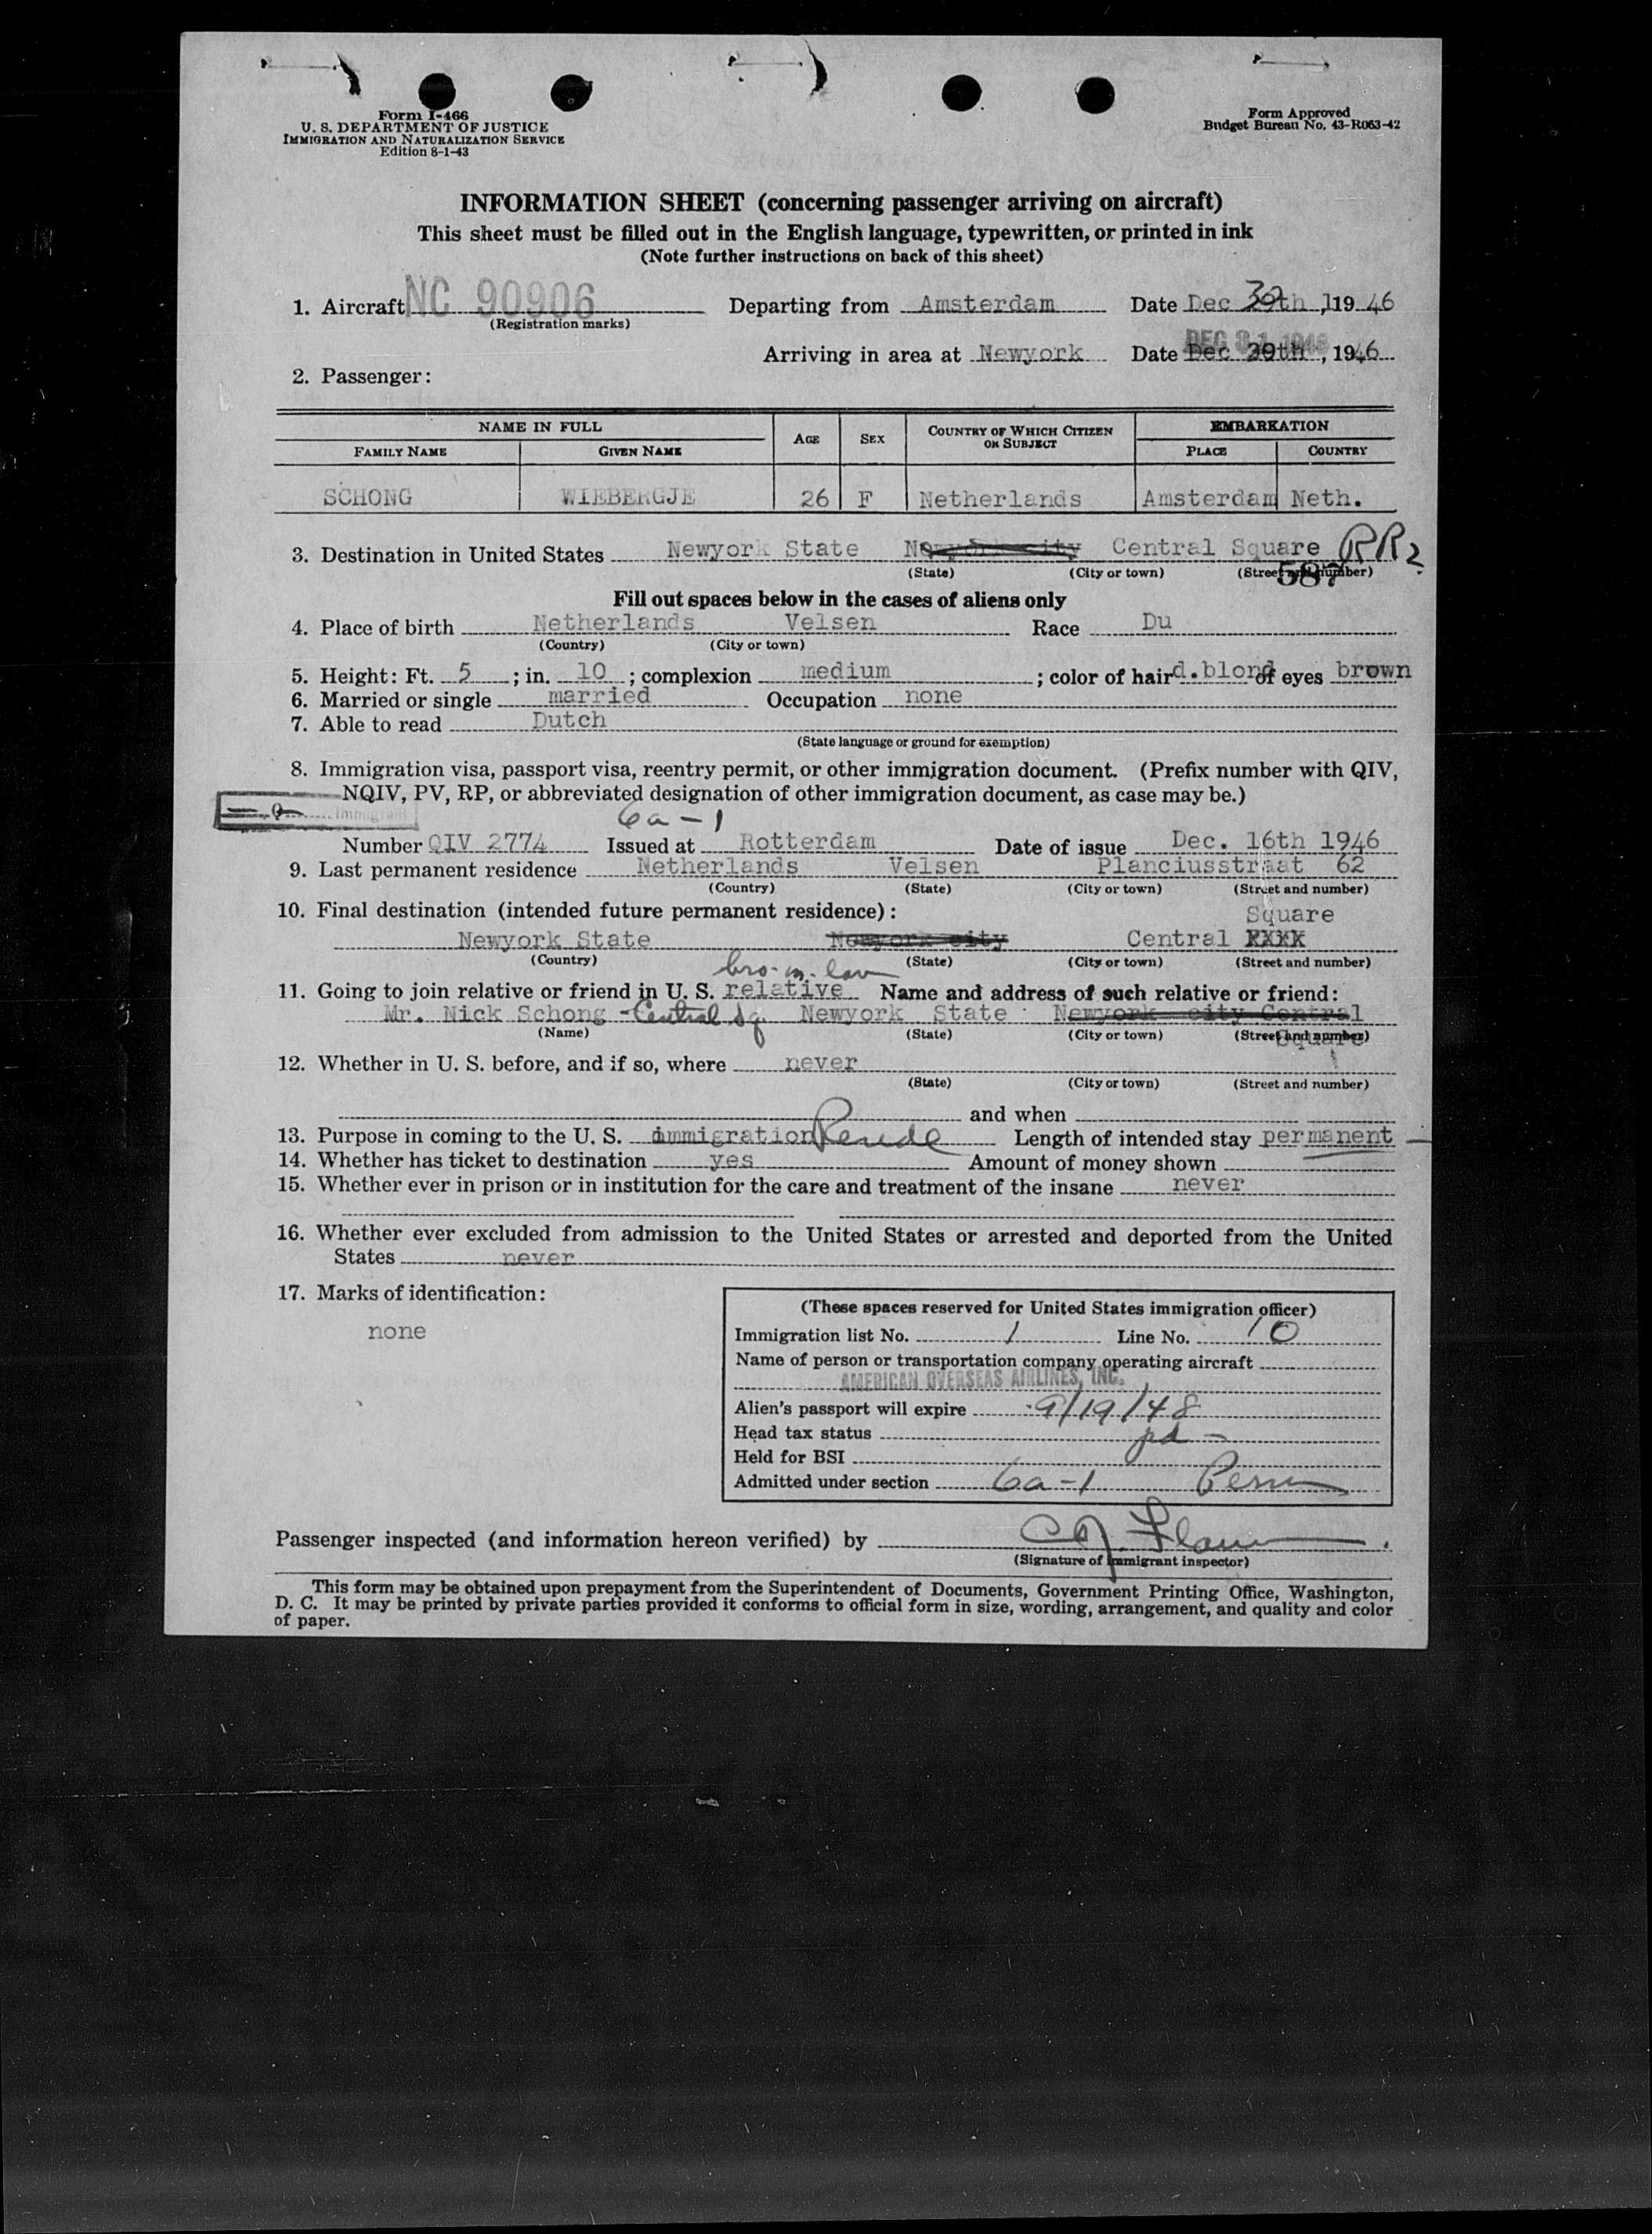 Form I-466
U. S. DEPARTMENT OF JUSTICE
IMMIGRATION AND NATURALIZATION SERVICE
Edition 8-1-43
Form Approved
Budget Bureau No. 43-R063-42
INFORMATION SHEET (concerning passenger arriving on aircraft)
This sheet must be filled out in the English language, typewritten, or printed in ink
(Note further instructions on back of this sheet)
1. Aircraft NC 90906 Departing from Amsterdam Date Dec 30th, 1946
(Registration marks)
Arriving in area at Newyork Date Dec 30th, 1946
DEC 31 1946
2. Passenger:
NAME IN FULL AGE SEX COUNTRY OF WHICH CITIZEN OR SUBJECT EMBARKATION
FAMILY NAME GIVEN NAME PLACE COUNTRY
SCHONG WIEBERGJE 26 F Netherlands Amsterdam Neth.
3. Destination in United States Newyork State Newyork city Central Square RR2
(State) (City or town) (Street and number)
587
Fill out spaces below in the cases of aliens only
4. Place of birth Netherlands Velsen Race Du
(Country) (City or town)
5. Height: Ft. 5; in. 10; complexion medium; color of hair d.blond of eyes brown
6. Married or single married Occupation none
7. Able to read Dutch
(State language or ground for exemption)
8. Immigration visa, passport visa, reentry permit, or other immigration document. (Prefix number with QIV,
NQIV, PV, RP, or abbreviated designation of other immigration document, as case may be.)
Immigrant
6a-1
Number QIV 2774 Issued at Rotterdam Date of issue Dec. 16th 1946
9. Last permanent residence Netherlands Velsen Planciusstraat 62
(Country) (State) (City or town) (Street and number)
10. Final destination (intended future permanent residence):
Square
Newyork State Newyork city Central XXXX
(Country) (State) (City or town) (Street and number)
bro-in-law
11. Going to join relative or friend in U. S. relative Name and address of such relative or friend:
Mr. Nick Schong - Central Sq Newyork State Newyork city Central
(Name) (State) (City or town) (Street and number)
Square
12. Whether in U. S. before, and if so, where never
(State) (City or town) (Street and number)
and when
13. Purpose in coming to the U. S. immigration Reside Length of intended stay permanent
14. Whether has ticket to destination yes Amount of money shown
15. Whether ever in prison or in institution for the care and treatment of the insane never
16. Whether ever excluded from admission to the United States or arrested and deported from the United
States never
17. Marks of identification:
none
(These spaces reserved for United States immigration officer)
Immigration list No. 1 Line No. 10
Name of person or transportation company operating aircraft
AMERICAN OVERSEAS AIRLINES, INC.
Alien's passport will expire 9/19/48
Head tax status pd -
Held for BSI
Admitted under section 6a-1 Perm
Passenger inspected (and information hereon verified) by
(Signature of immigrant inspector)
This form may be obtained upon prepayment from the Superintendent of Documents, Government Printing Office, Washington,
D. C. It may be printed by private parties provided it conforms to official form in size, wording, arrangement, and quality and color
of paper.